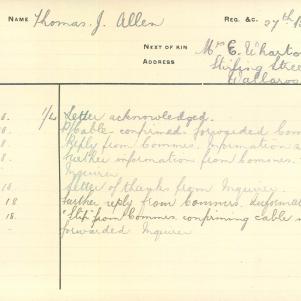 NAME Thomas. J. Allen REG. &C. 27th B
NEXT OF KIN Mrs E. Wharto
ADDRESS Stirling Stree
Wallaroo
0. 1/2 Letter acknowledged.
0. Cable confirmed forwarded Com
8. Reply from Commrs. Information a
8. further information from Commrs.
Inquirer
18 Letter of thanks from Inquirer.
18 further reply from Commrs. Informat
18. "Slip" from Commrs confirming cable
- forwarded Inquirer